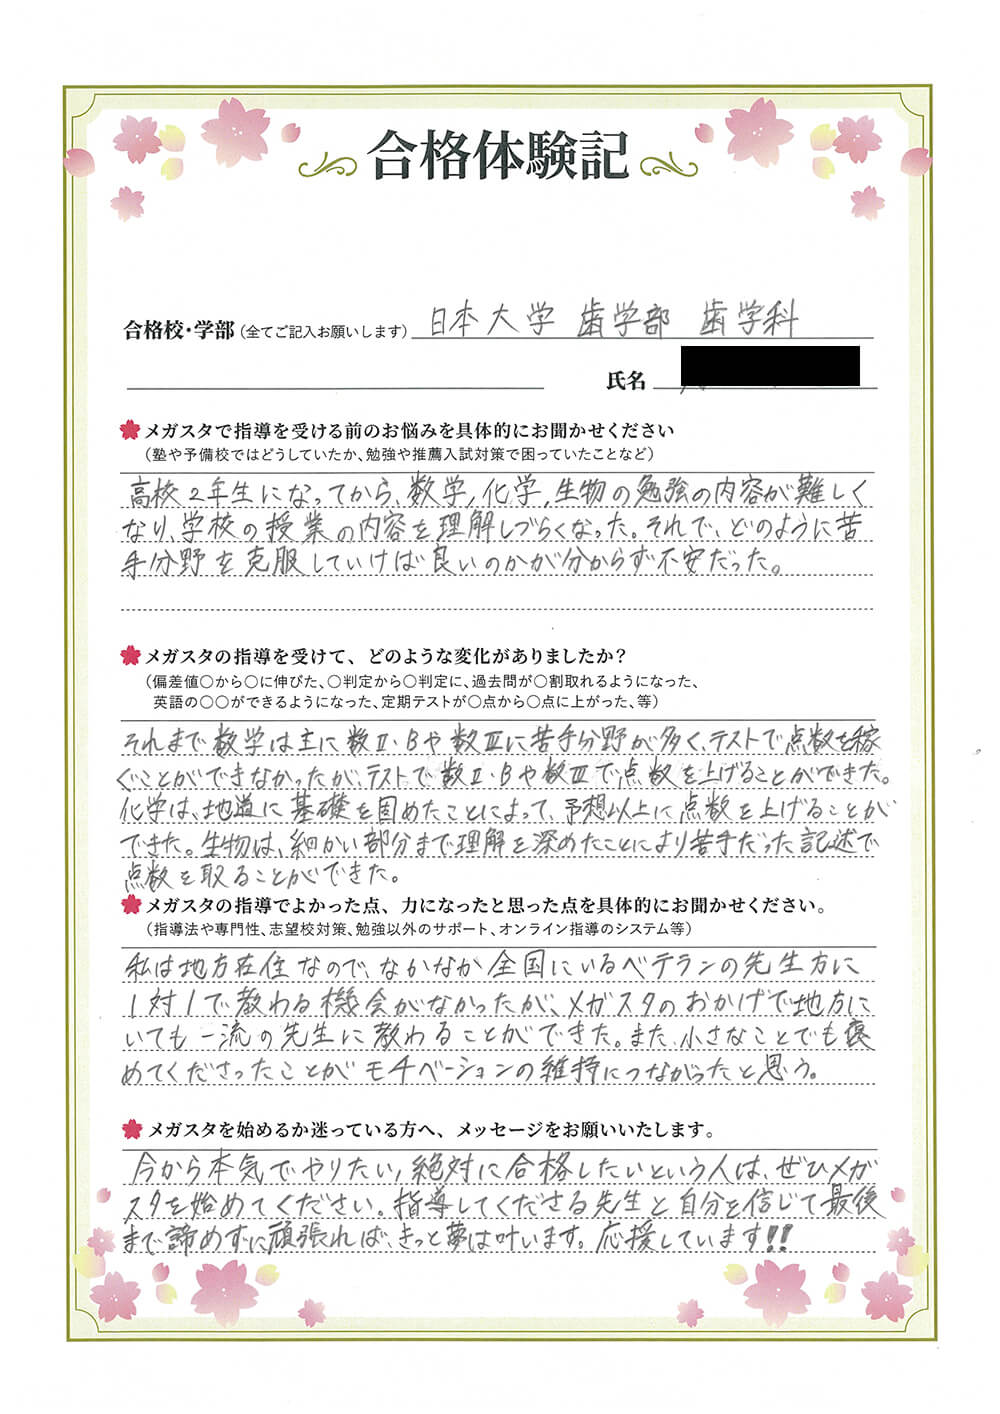 合格体験記
合格校・学部(全てご記入お願いします) 日本大学 歯学部 歯学科
氏名
メガスタで指導を受ける前のお悩みを具体的にお聞かせください
(塾や予備校ではどうしていたか、勉強や推薦入試対策で困っていたことなど)
高校2年生になってから、数学,化学,生物の勉強の内容が難しく
なり、学校の授業の内容を理解しづらくなった。それで、どのように苦
手分野を克服していけば良いのかが分からず不安だった。
メガスタの指導を受けて、どのような変化がありましたか?
(偏差値○から○に伸びた、○判定から○判定に、過去問が○割取れるようになった、
英語の○○ができるようになった、定期テストが○点から○点に上がった、等)
それまで数学は主に数Ⅱ・Bや数Ⅲに苦手分野が多く、テストで点数を稼
ぐことができなかったが、テストで数Ⅱ・Bや数Ⅲで点数を上げることができた。
化学は、地道に基礎を固めたことによって、予想以上に点数を上げることが
できた。生物は、細かい部分まで理解を深めたことにより苦手だった記述で
点数を取ることができた。
メガスタの指導でよかった点、力になったと思った点を具体的にお聞かせください。
(指導法や専門性、志望校対策、勉強以外のサポート、オンライン指導のシステム等)
私は地方在住なので、なかなか全国にいるベテランの先生方に
1対1で教わる機会がなかったが、メガスタのおかげで地方に
いても一流の先生に教わることができた。また、小さなことでも褒
めてくださったことがモチベーションの維持につながったと思う。
メガスタを始めるか迷っている方へ、メッセージをお願いいたします。
今から本気でやりたい,絶対に合格したいという人は、ぜひメガ
スタを始めてください。指導してくださる先生と自分を信じて最後
まで諦めずに頑張れば、きっと夢は叶います。応援しています!!